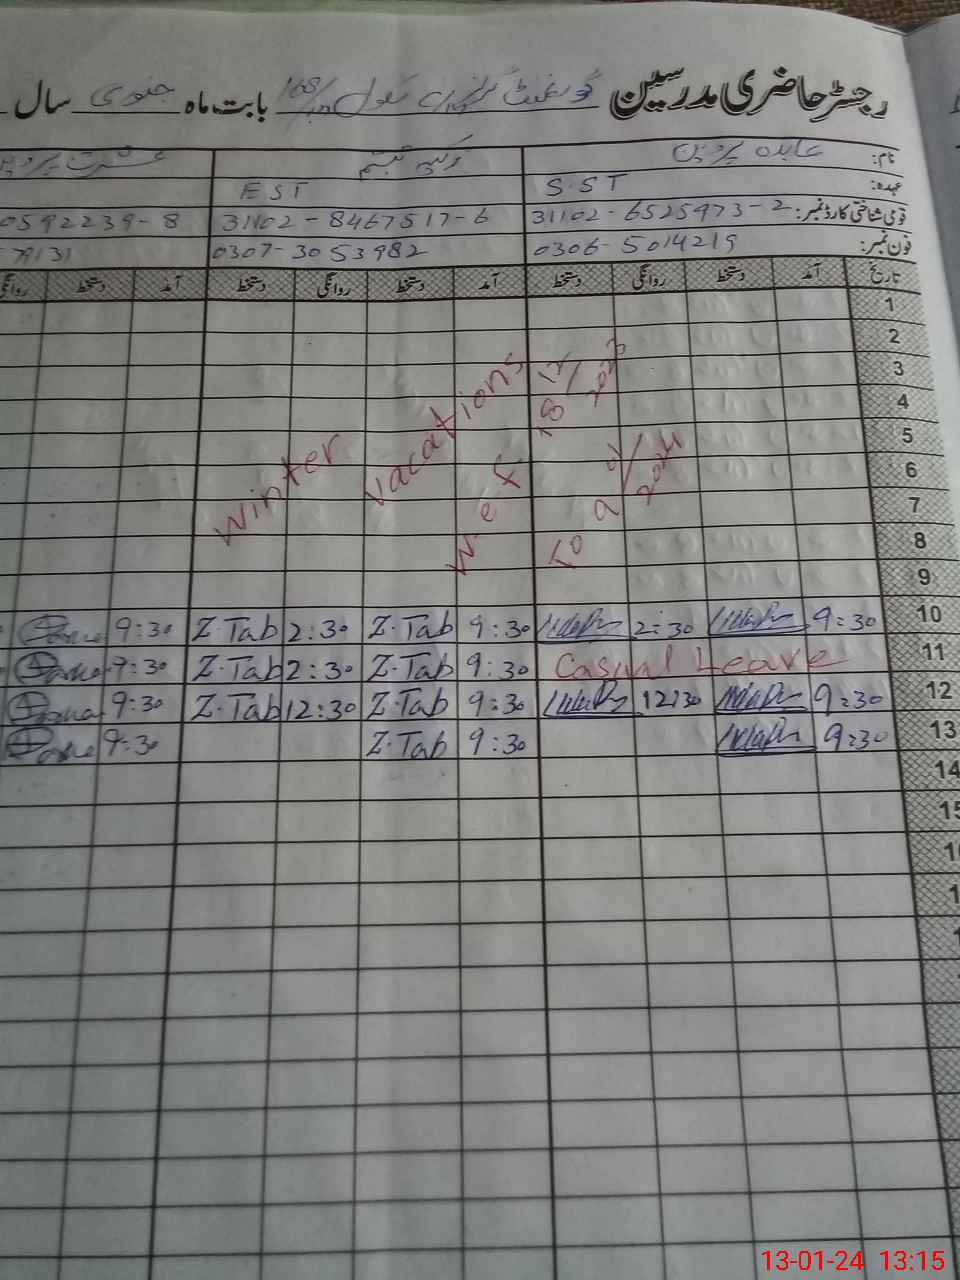 رجسٹر حاضری مدرسین گورنمنٹ گرلز ہائی سکول 168 بابت ماہ جنوری سال
نام: عابدہ پروین تبسم عشرت پروین
عہدہ: S.ST EST
قومی شناختی کارڈ نمبر: 31102-6525973-2 31102-8467517-6 0592239-8
فون نمبر: 0306-5014219 0307-3053982 79131
تاریخ آمد دستخط روانگی دستخط آمد دستخط روانگی دستخط آمد دستخط روانگی
1
2
3
4
5
6
7
8
9
Winter Vacations w.e.f 18/12/2023
To 9/1/2024
10 9:30 2:30 9:30 Z.Tab 2:30 Z.Tab 9:30
11 Casual Leave 9:30 Z.Tab 2:30 Z.Tab 9:30
12 9:30 12:30 9:30 Z.Tab 12:30 Z.Tab 9:30
13 9:30 9:30 Z.Tab 9:30
14
15
13-01-24 13:15